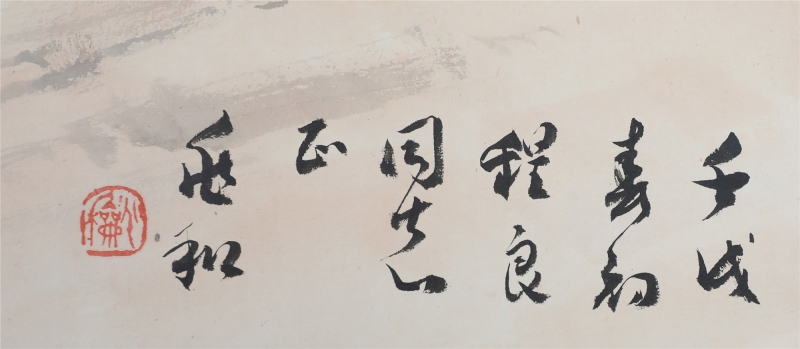 壬戌
春初
程良
同志
正
兆和